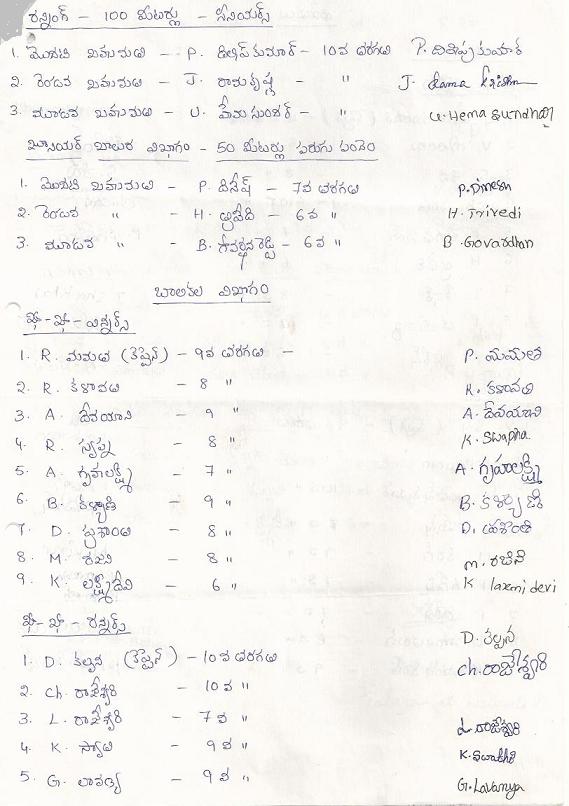 రన్నింగ్ - 100 మీటర్లు - సీనియర్స్
1. మొదటి బహుమతి - P. దిలీప్ కుమార్ - 10వ తరగతి P. దిలీపు కుమార్
2. రెండవ బహుమతి - J. రామకృష్ణ - " J. Rama Krishna
3. మూడవ బహుమతి - U. హేమసుందర్ - " U. Hema Sundhar
జూనియర్ బాలుర విభాగం - 50 మీటర్లు పరుగు పందెం
1. మొదటి బహుమతి - P. దినేష్ - 7వ తరగతి P. Dinesh
2. రెండవ " - H. త్రివేది - 6వ " H. Trivedi
3. మూడవ " - B. గోవర్ధనరెడ్డి - 6వ " B. Govardhan
బాలికల విభాగం
ఖో-ఖో - విన్నర్స్
1. R. మమత (కెప్టెన్) - 9వ తరగతి - P. మమత
2. R. కళావతి - 8 " R. కళావతి
3. A. దేవయాని - 9 " A. దేవయాని
4. R. స్వప్న - 8 " K. Swapna
5. A. గృహలక్ష్మి - 7 " A. గృహలక్ష్మి
6. B. కళ్యాణి - 9 " B. కళ్యాణి
7. D. ప్రశాంతి - 8 " D. ప్రశాంతి
8. M. రజని - 8 " M. రజిని
9. K. లక్ష్మీదేవి - 6 " K laxmi devi
ఖో-ఖో - రన్నర్స్
1. D. కల్పన (కెప్టెన్) - 10వ తరగతి D. కల్పన
2. Ch. రాజేశ్వరి - 10వ " Ch. రాజేశ్వరి
3. L. రాజేశ్వరి - 7వ " L. రాజేశ్వరి
4. K. స్వాతి - 9వ " K. Swathi
5. G. లావణ్య - 9వ " G. Lavanya